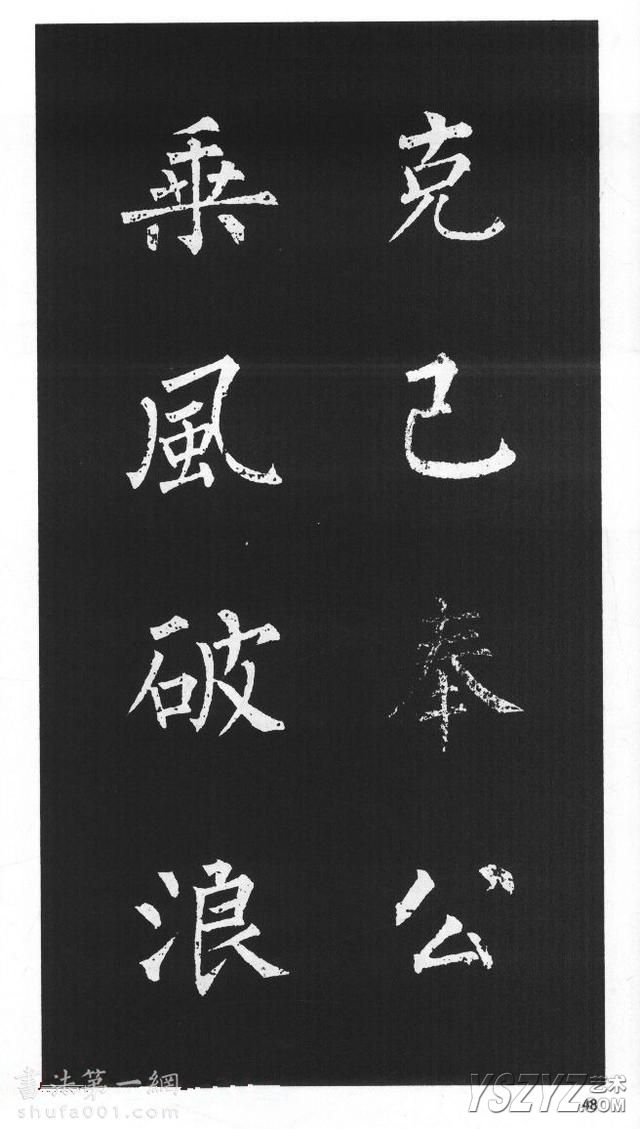 克己奉公
乗風破浪
書法第一網
shufa001.com
48
YSZYZ艺术
.COM